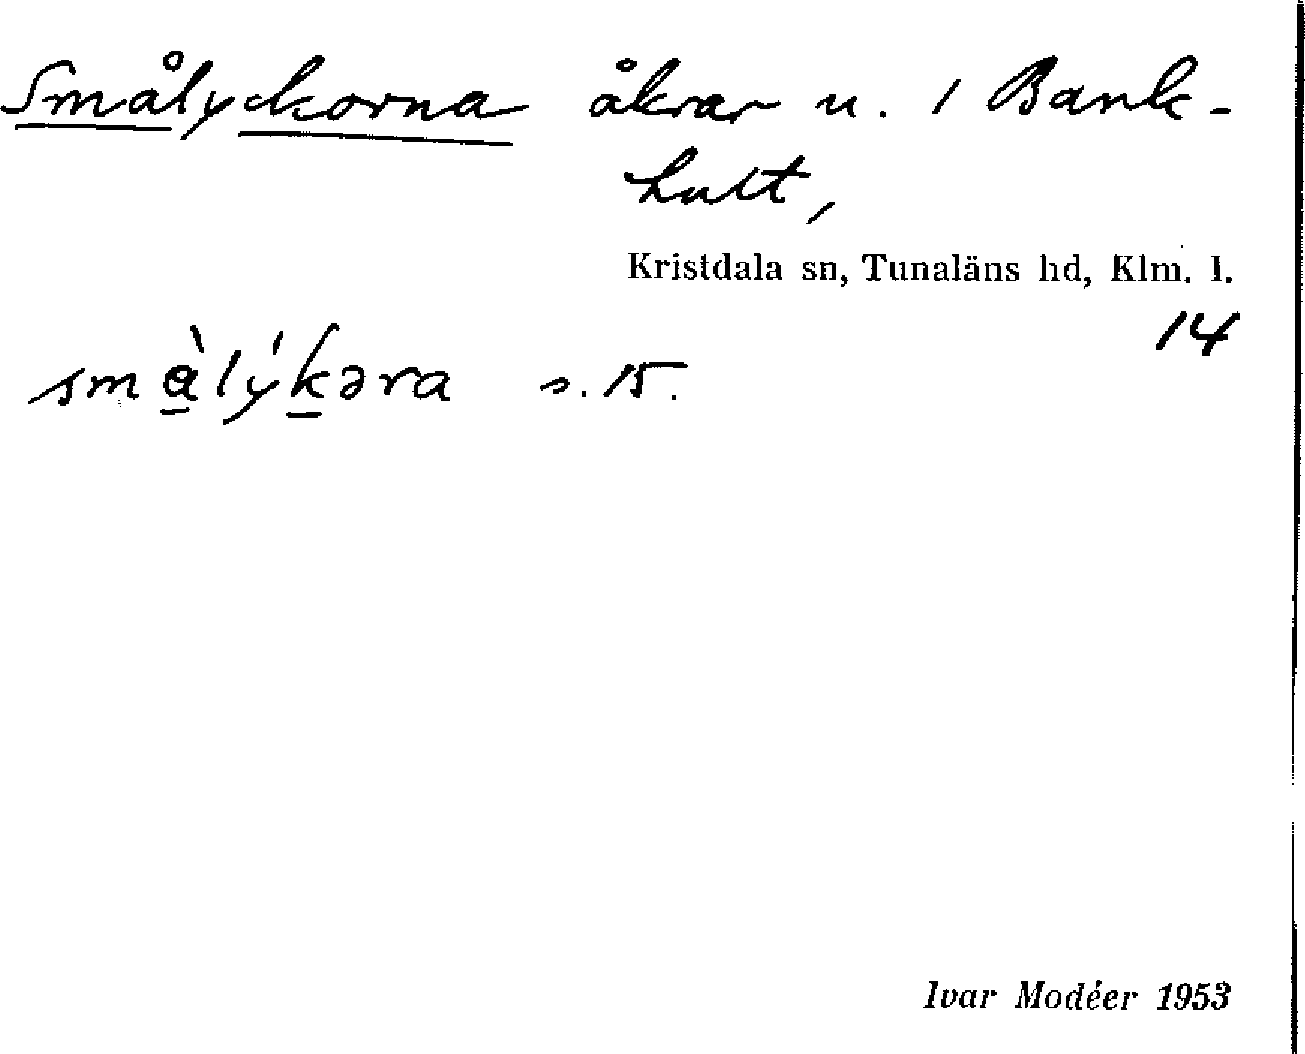 Smålyckorna åkrar u. 1 Bank-
hult,
Kristdala sn, Tunaläns hd, Klm. l.
14
små
̀lýkəra s. 15.
Ivar Modéer 1953